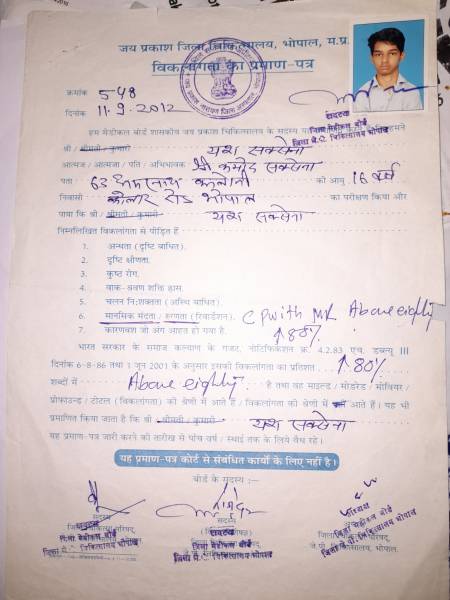 जय प्रकाश जिला चिकित्सालय, भोपाल, म.प्र.
विकलांगता का प्रमाण-पत्र
क्रमांक 548
दिनांक 11.9.2012
हम मेडीकल बोर्ड शासकीय जय प्रकाश चिकित्सालय के सदस्य
श्री / श्रीमती / कुमारी यश सक्सेना
आत्मज / आत्मजा / पति / अभिभावक श्री कमोद सक्सेना
पता 63 अमरनाथ कालोनी की आयु 16 वर्ष
निवासी कोलार रोड भोपाल का परीक्षण किया और
पाया कि श्री / श्रीमती / कुमारी यश सक्सेना
निम्नलिखित विकलांगता से पीड़ित हैं
1. अन्धता (दृष्टि बाधित)।
2. दृष्टि क्षीणता.
3. कुष्ठ रोग.
4. वाक-श्रवण शक्ति हास.
5. चलन निःशक्तता (अस्थि बाधित)।
6. मानसिक मंदता / रूग्णता (रिटार्डेशन). CP with MR Above eighty
7. कारणवश जो अंग आहत हो गया है. ↑80%
भारत सरकार के समाज कल्याण के गजट, नोटिफिकेशन क्र. 4.2.83 एच. डब्ल्यू III
दिनांक 6-8-86 तथा 1 जून 2001 के अनुसार इसकी विकलांगता का प्रतिशत ↑80%
शब्दों में Above eighty है तथा वह माइल्ड / मोडरेड / सीवियर /
प्रोफाउन्ड / टोटल (विकलांगता) की श्रेणी में आते हैं / विकलांगता की श्रेणी में आते हैं। यह भी
प्रमाणित किया जाता है कि श्री श्रीमती / कुमारी यश सक्सेना
यह प्रमाण-पत्र जारी करने की तारीख से पांच वर्ष / स्थाई तक के लिये वैध रहे।
यह प्रमाण-पत्र कोर्ट से संबंधित कार्यो के लिए नहीं है।
बोर्ड के सदस्य :—
सदस्य सदस्य अध्यक्ष
जिला मेडीकल बोर्ड
जिला जे.पी. चिकित्सालय भोपाल